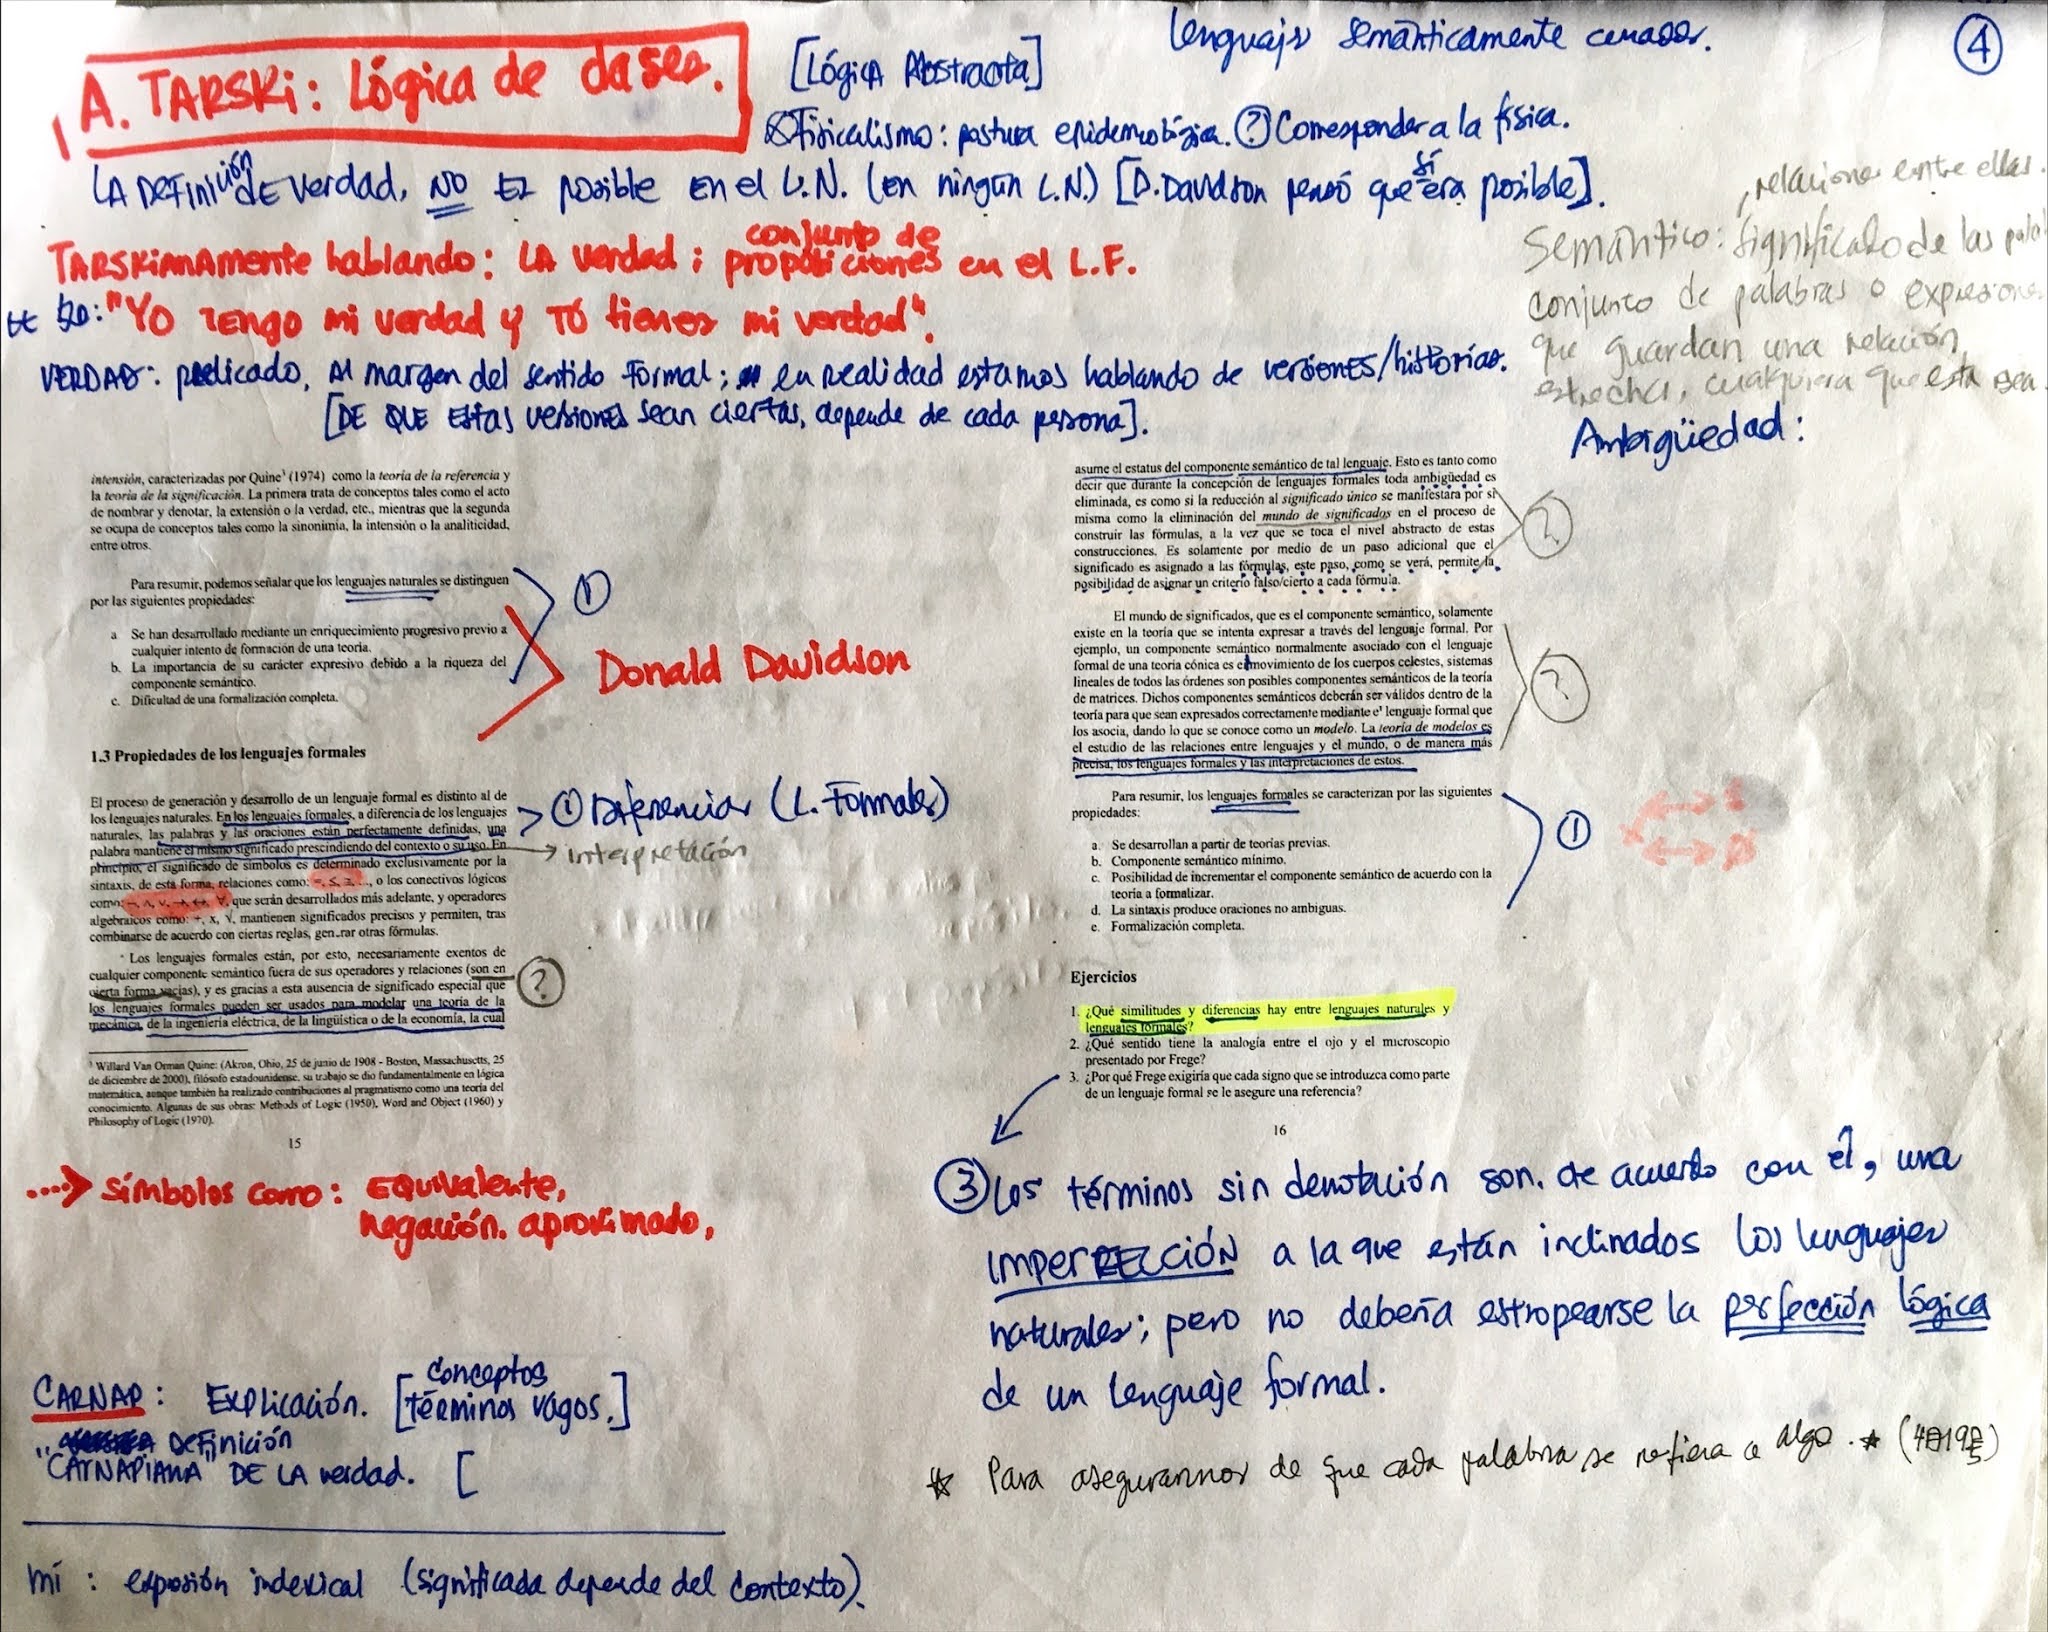 A. TARSKi: Lógica de clases.
[Lógica Abstracta]
lenguajes semánticamente cerrados.
4
Fisicalismo: postura epidemiológica. ? Corresponder a la física.
LA DEFinición DE verdad, NO ES posible EN el L.N. (en ningún L.N.) [D. Davidson pensó que sí era posible].
TARSKiANAmente hablando: LA verdad ; conjunto de proposiciones en el L.F.
"YO TENGO mi verdad y TÚ tienes mi verdad".
VERDAD: predicado, Al margen del sentido formal; en realidad estamos hablando de versiones/historias.
[DE QUE Estas versiones sean ciertas, depende de cada persona].
, relaciones entre ellas.
Semántico: Significado de las pala
conjunto de palabras o expresiones
que guardan una relación
estrecha, cualquiera que esta sea.
Ambigüedad:
intensión, caracterizadas por Quine³ (1974) como la teoría de la referencia y
la teoría de la significación. La primera trata de conceptos tales como el acto
de nombrar y denotar, la extensión o la verdad, etc., mientras que la segunda
se ocupa de conceptos tales como la sinonimia, la intensión o la analiticidad,
entre otros.
Para resumir, podemos señalar que los lenguajes naturales se distinguen
por las siguientes propiedades:
a Se han desarrollado mediante un enriquecimiento progresivo previo a
cualquier intento de formación de una teoría.
b. La importancia de su carácter expresivo debido a la riqueza del
componente semántico.
c. Dificultad de una formalización completa.
1
Donald Davidson
1.3 Propiedades de los lenguajes formales
El proceso de generación y desarrollo de un lenguaje formal es distinto al de
los lenguajes naturales. En los lenguajes formales, a diferencia de los lenguajes
naturales, las palabras y las oraciones están perfectamente definidas, una
palabra mantiene el mismo significado prescindiendo del contexto o su uso. En
principio, el significado de símbolos es determinado exclusivamente por la
sintaxis, de esta forma, relaciones como: =, ≤, ≥, ..., o los conectivos lógicos
como: ¬, ∧, ∨, →, ↔, ∀, que serán desarrollados más adelante, y operadores
algebraicos como: +, x, √, mantienen significados precisos y permiten, tras
combinarse de acuerdo con ciertas reglas, generar otras fórmulas.
1 Diferenciar (L. Formales)
interpretación
Los lenguajes formales están, por esto, necesariamente exentos de
cualquier componente semántico fuera de sus operadores y relaciones (son en
cierta forma vacías), y es gracias a esta ausencia de significado especial que
los lenguajes formales pueden ser usados para modelar una teoría de la
mecánica, de la ingeniería eléctrica, de la lingüística o de la economía, la cual
?
³ Willard Van Orman Quine: (Akron, Ohio, 25 de junio de 1908 - Boston, Massachusetts, 25
de diciembre de 2000), filósofo estadounidense, su trabajo se dio fundamentalmente en lógica
matemática, aunque también ha realizado contribuciones al pragmatismo como una teoría del
conocimiento. Algunas de sus obras: Methods of Logic (1950), Word and Object (1960) y
Philosophy of Logic (1970).
15
asume el estatus del componente semántico de tal lenguaje. Esto es tanto como
decir que durante la concepción de lenguajes formales toda ambigüedad es
eliminada, es como si la reducción al significado único se manifestara por sí
misma como la eliminación del mundo de significados en el proceso de
construir las fórmulas, a la vez que se toca el nivel abstracto de estas
construcciones. Es solamente por medio de un paso adicional que el
significado es asignado a las fórmulas, este paso, como se verá, permite la
posibilidad de asignar un criterio falso/cierto a cada fórmula.
?
El mundo de significados, que es el componente semántico, solamente
existe en la teoría que se intenta expresar a través del lenguaje formal. Por
ejemplo, un componente semántico normalmente asociado con el lenguaje
formal de una teoría cónica es el movimiento de los cuerpos celestes, sistemas
lineales de todos las órdenes son posibles componentes semánticos de la teoría
de matrices. Dichos componentes semánticos deberán ser válidos dentro de la
teoría para que sean expresados correctamente mediante el lenguaje formal que
los asocia, dando lo que se conoce como un modelo. La teoría de modelos es
el estudio de las relaciones entre lenguajes y el mundo, o de manera más
precisa, los lenguajes formales y las interpretaciones de estos.
?
Para resumir, los lenguajes formales se caracterizan por las siguientes
propiedades:
a. Se desarrollan a partir de teorías previas.
b. Componente semántico mínimo.
c. Posibilidad de incrementar el componente semántico de acuerdo con la
teoría a formalizar.
d. La sintaxis produce oraciones no ambiguas.
e. Formalización completa.
1
Ejercicios
1. ¿Qué similitudes y diferencias hay entre lenguajes naturales y
lenguajes formales?
2. ¿Qué sentido tiene la analogía entre el ojo y el microscopio
presentado por Frege?
3. ¿Por qué Frege exigiría que cada signo que se introduzca como parte
de un lenguaje formal se le asegure una referencia?
16
símbolos como: EQUivalente,
negación. aproximado,
3 Los términos sin denotación son. de acuerdo con él, una
IMPERFECCIÓN a la que están inclinados los lenguajes
naturales; pero no debería estropearse la perfección lógica
de un lenguaje formal.
* Para asegurarnos de que cada palabra se refiera a algo. *
CARNAP: EXPLICACIÓN. [conceptos términos vagos.]
DEFINICIÓN
"CARNAPIANA" DE LA verdad. [
mí : expresión indexical (significada depende del contexto).